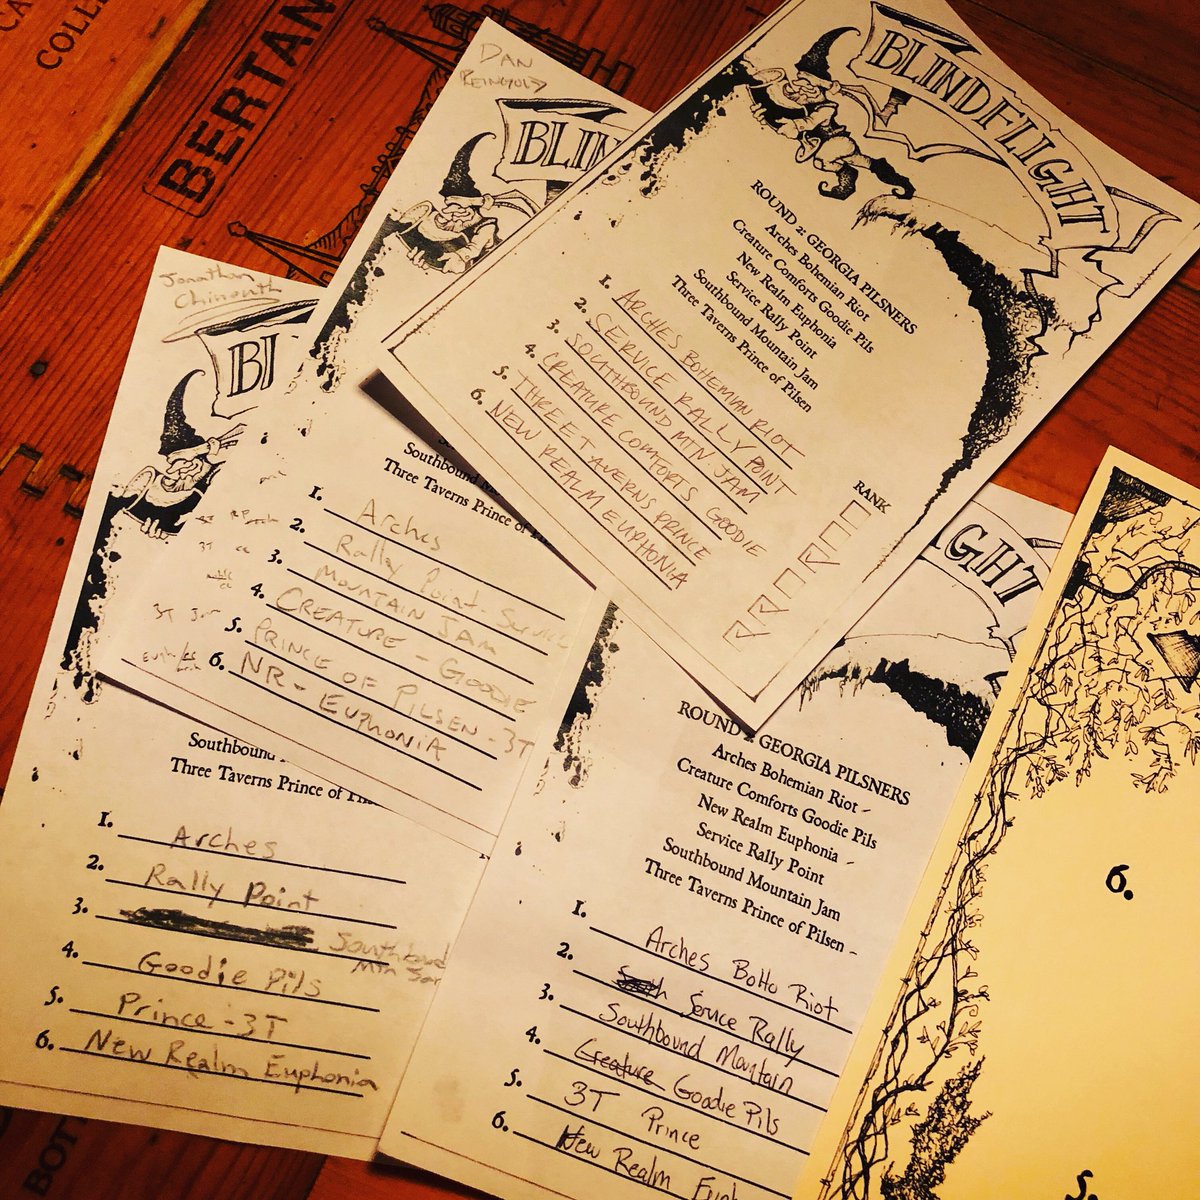 CA
COLLE
BERTAN
BOT
BLINDFLIGHT
ROUND 2: GEORGIA PILSNERS
Arches Bohemian Riot
Creature Comforts Goodie Pils
New Realm Euphonia
Service Rally Point
Southbound Mountain Jam
Three Taverns Prince of Pilsen
1. ARCHES BOHEMIAN RIOT
2. SERVICE RALLY POINT
3. SOUTHBOUND MTN. JAM
4. CREATURE COMFORTS GOODIE
5. THREE TAVERNS PRINCE
6. NEW REALM EUPHONIA
RANK
DAN
BLIN
Southbound M
Three Taverns Prince of
1. Arches
2. Rally Point - Service
3. MOUNTAIN JAM
4. CREATURE - GOODIE
5. PRINCE OF PILSEN - 3T
6. NR - EUPHONIA
3T
Jonathan
BI
Southbound
Three Taverns Prince of Pil
1. Arches
2. Rally Point
3. Southbound
Mtn Jam
4. Goodie Pils
5. Prince - 3T
6. New Realm Euphonia
IGHT
ROUND 2: GEORGIA PILSNERS
Arches Bohemian Riot -
Creature Comforts Goodie Pils
New Realm Euphonia -
Service Rally Point
Southbound Mountain Jam
Three Taverns Prince of Pilsen -
1. Arches BoHo Riot
2. Service Rally
3. Southbound Mountain
4. Creature Goodie Pils
5. 3T Prince
6. New Realm Euph
6.
5.